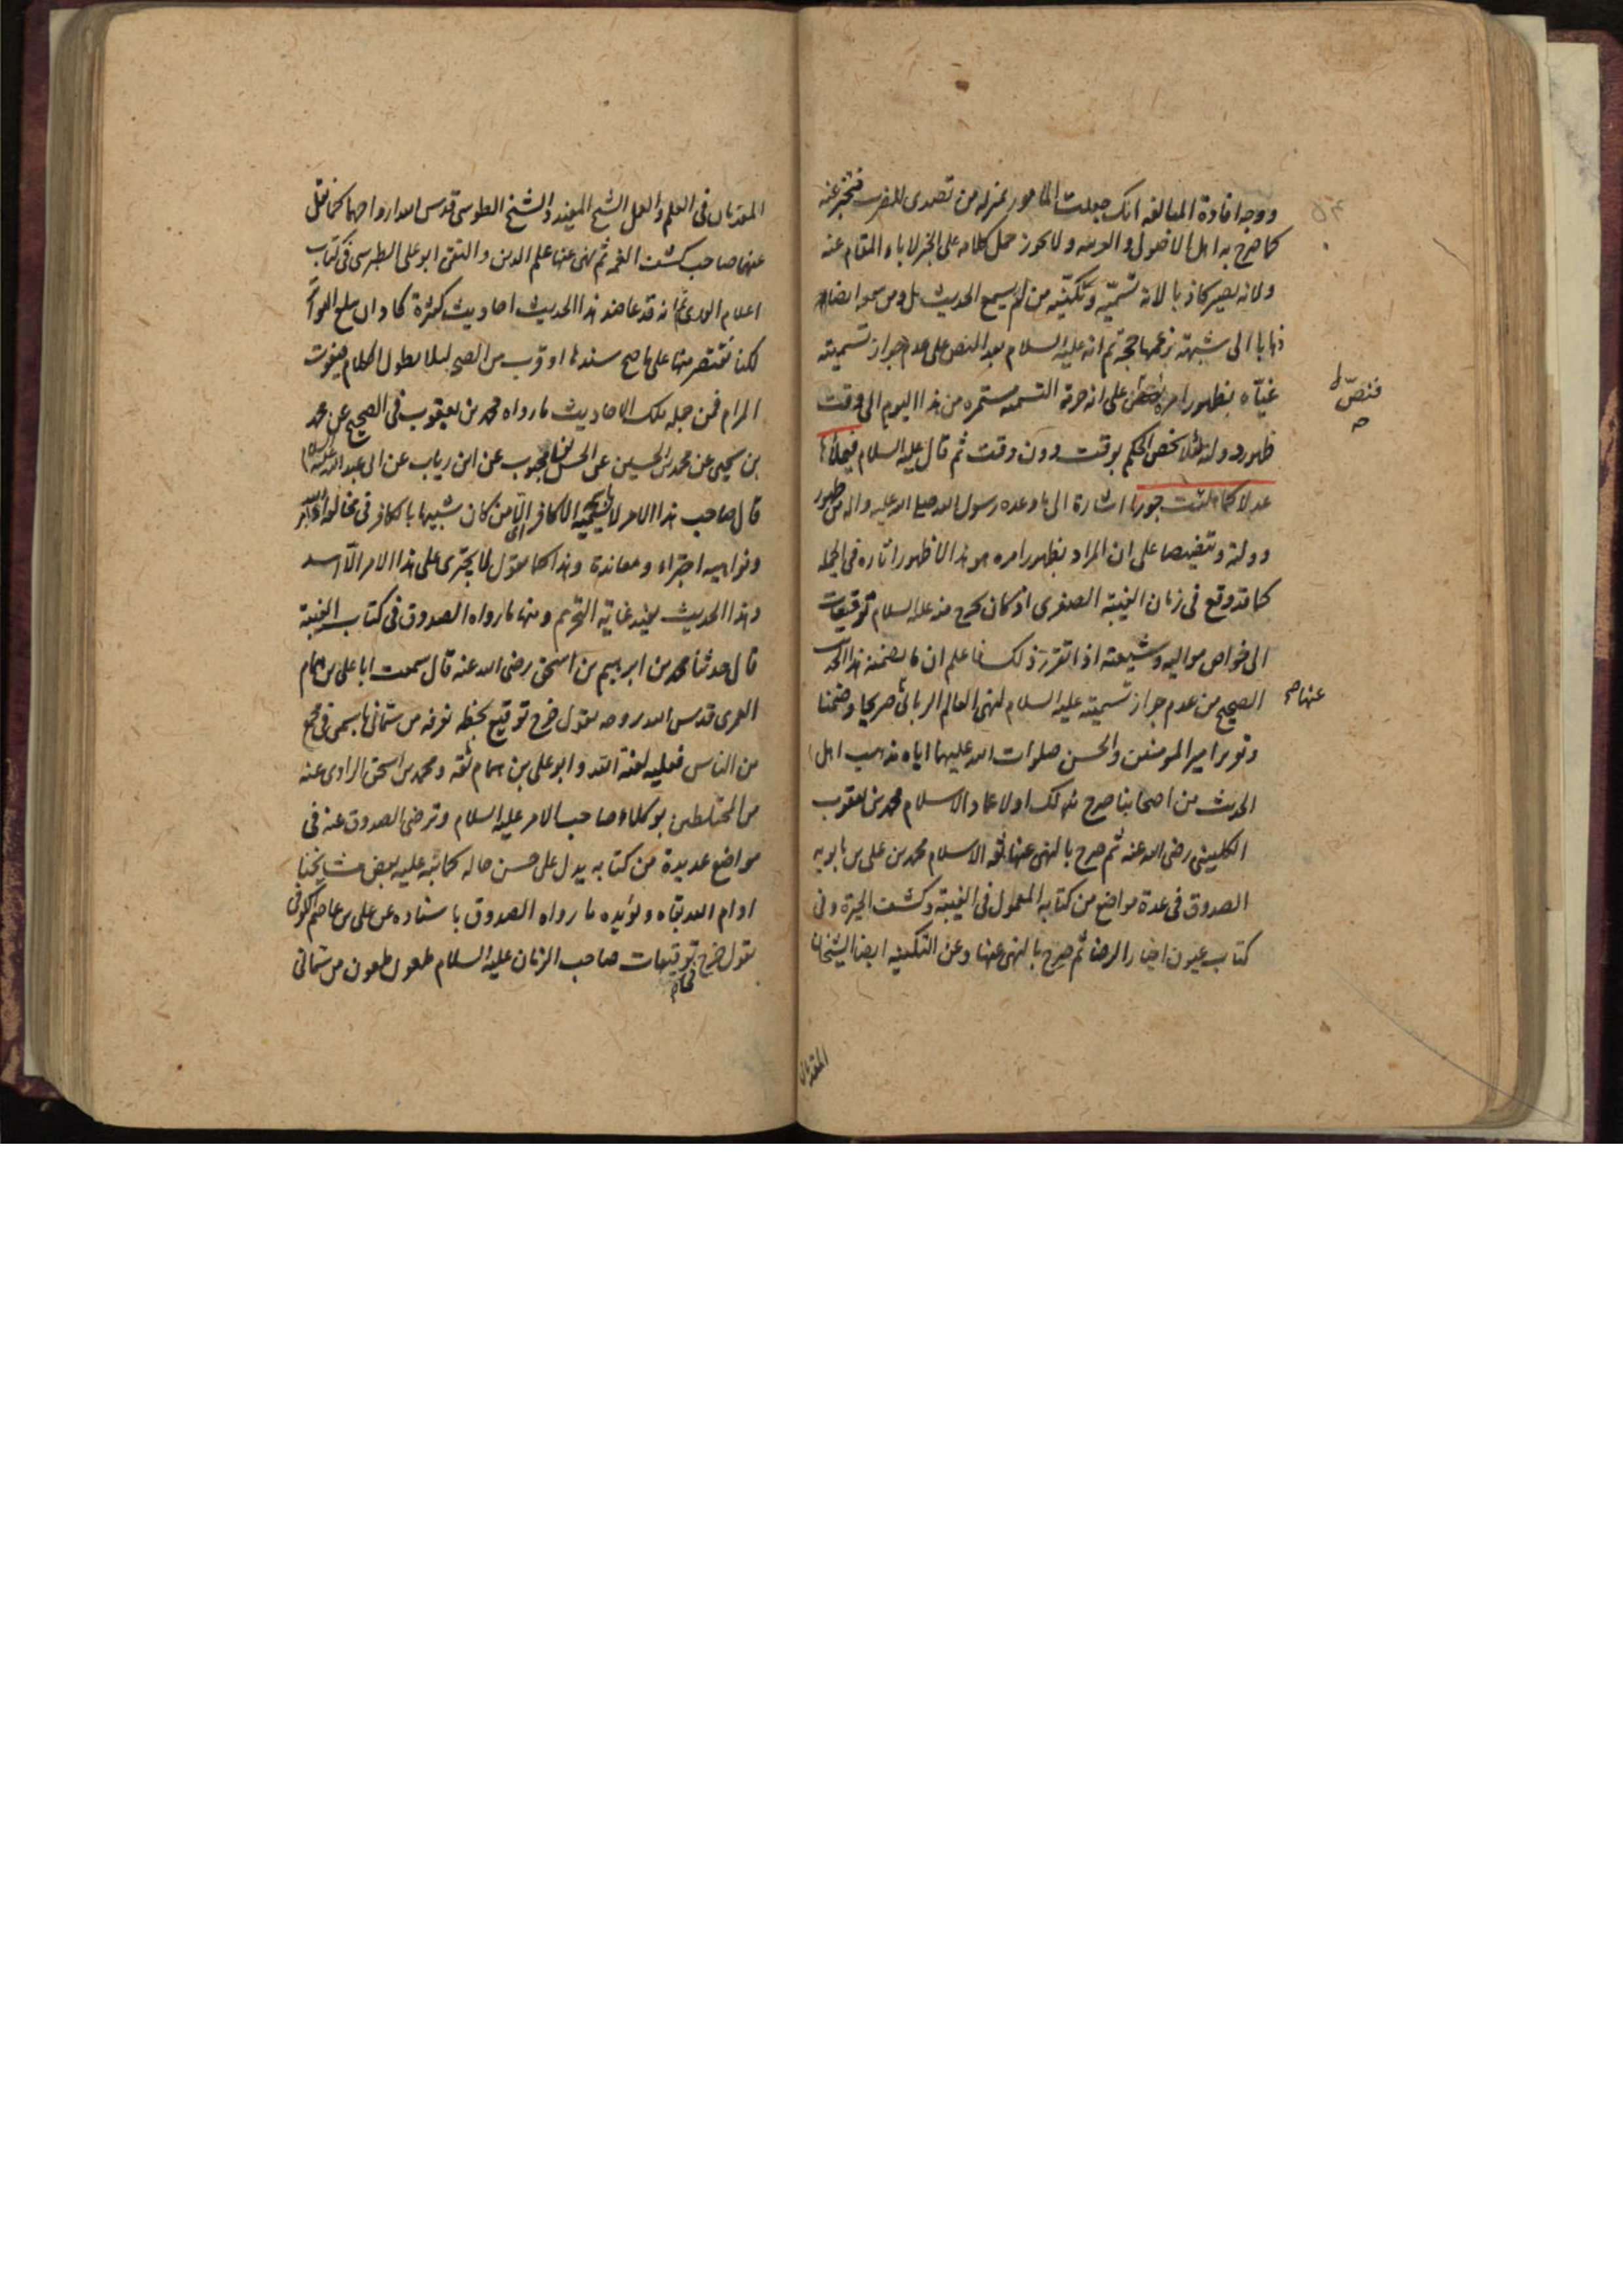 ووجه افادة المبالغه انك جعلت المامور بمنزله من تصدى للضرب فتخبر عنه
كما صرح به اهل الاصول والعربيه ولا يجوز حمل كلامه على الخبر لاباء المقام عنه
ولانه يصير كاذبا لانه تسميّه وتكنّيه من لم يسمع الحديث بل ومن سمعوا ايضا
ذهابا الى شبهته زعمها حجة ثم انه عليه السلام بعد النص على عدم جواز تسميته
غيّاه بظهور امره على ان حرمة التسميه مستمره من هذا اليوم الى وقت
فنصّ
ظهور دولته لئلا يخص الحكم بوقت دون وقت ثم قال عليه السلام فيملأها
عدلا كما ملئت جورا اشارة الى ما وعده رسول الله صلى الله عليه واله من ظهور
دولته وتنصيصا على ان المراد بظهور امره هو هذا لا ظهور اثاره في الجمله
كما قد وقع في زمان الغيبته الصغرى اذ كان يخرج منه عليه السلام توقيعات
الى خواص مواليه وشيعته اذا تقرر ذلك فاعلم ان ما يضمنه هذا الحديث
الصحيح من عدم جواز تسميته عليه السلام لنهى العالم الربانى صريحا وضمنا
عنها صح
وتقرير امير المومنين والحسن صلوات الله عليهما اياه مذهب اهل
الحديث من اصحابنا صرح بذلك اولا عماد الاسلام محمد بن يعقوب
الكلينى رضى الله عنه ثم صرح بالنهى عنها ثقه الاسلام محمد بن على بن بابويه
الصدوق في عدة مواضع من كتابه المعمول في الغيبته وكشف الحيرة وفى
كتاب عيون اخبار الرضا ثم صرح بالنهى عنها وعن التكنيه ايضا الشيخان
المقدمان
المقدمان في العلم والعمل الشيخ المفيد والشيخ الطوسى قدس الله ارواحهما كما نقل
عنهما صاحب كشف الغمه ثم نهى عنها علم الدين والتقى ابو على الطبرسى في كتاب
اعلام الورى ثم انه قد عاضد هذا الحديث احاديث كثرة كاد ان يبلغ التواتر
لكنا نقتصر منها على ما صح سندها او قرب من الصحه لئلا يطول الكلام فيفوت
المرام فمن جمله تلك الاحاديث ما رواه محمد بن يعقوب في الصحيح عن محمد
بن يحيى عن محمد بن الحسين عن الحسن بن محبوب عن ابن رياب عن ابى عبد الله عليه السلام
قال صاحب هذا الامر لا يسميه الا كافر اى من كان شبيها بالكافر في مخالفة اوامر الله
ونواهيه اجتراء ومعاندة وهذا كما تقول لا يجترى على هذا الامر الّا اسد
وهذا الحديث يفيد غاية التحريم ومنها ما رواه الصدوق في كتاب الغيبة
قال حدثنا محمد بن ابرهيم بن اسحق رضى الله عنه قال سمعت ابا على بن همام
العمرى قدس الله روحه يقول خرج توقيع بخطه نعرفه من سمّانى باسمى في مجمع
من الناس فعليه لعنة الله وابو على بن همام ثقه ومحمد بن اسحق الراوى عنه
من المختلطين بوكلاء صاحب الامر عليه السلام وترضى الصدوق عنه في
مواضع عديدة من كتابه يدل على حسن حاله كما نبّه عليه بعض مشايخنا
ادام الله بقاه ويؤيده ما رواه الصدوق باسناده عن على بن عاصم الكوفى
يقول خرج توقيعات صاحب الزمان عليه السلام ملعون ملعون من سمّانى